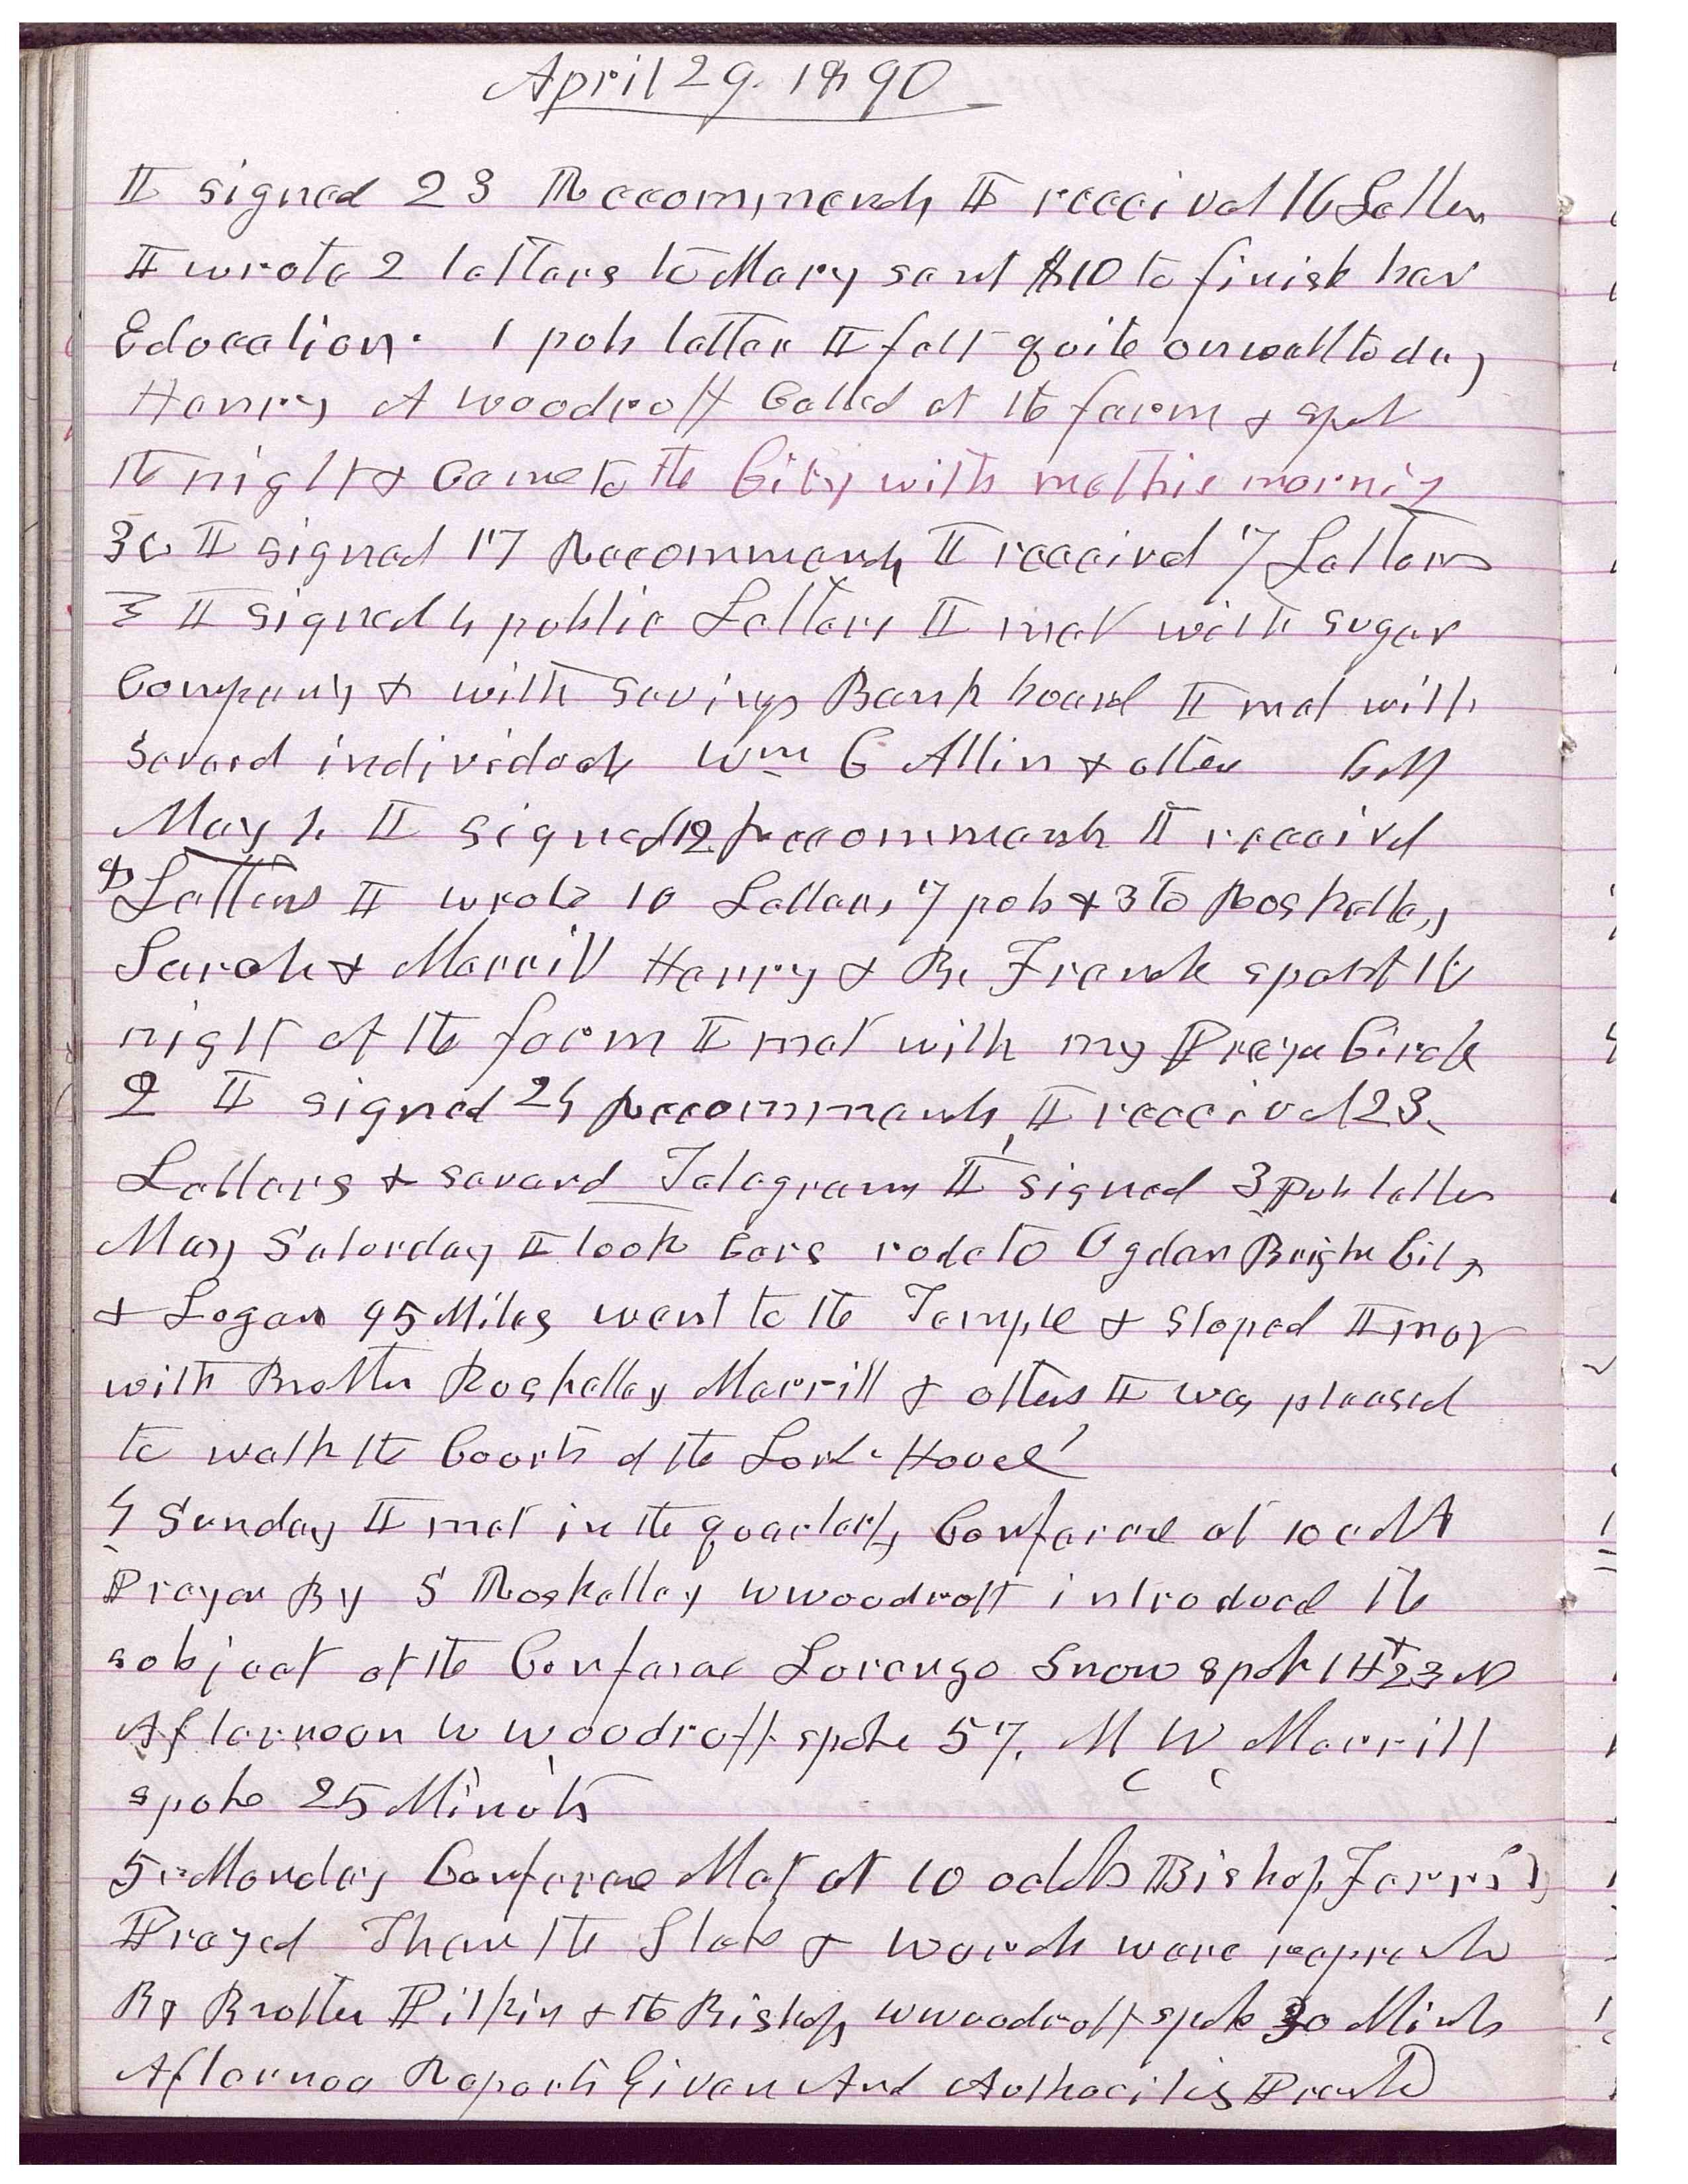 April 29. 1890
I signed 23 Recommends I received 16 Letters
I wrote 2 letters to Mary sent $10 to finish her
Education. 1 pub letter I felt quite unwell to day
Henry A Woodruff Called at the farm & spet
the night & Came to the City with me this morning
30 I signed 17 Recommends I receivd 7 Letters
I signed 4 public Letters I met with sugar
Company & with savings Bank board I met with
Severel individuals Wm C Allin & others
May 1. I signed 12 Recommends I receivd
Letters I wrote 10 Letters, 7 pub & 3 to Roskelley
Sarah & Merrill Henry & Br Frank spent the
night at the farm I met with my Prayer Circle
2 I signed 24 Recommends, I received 23.
Letters & severl Telegrams I signed 3 pub letters
May Saturday I took Cars rode to Ogden Brigham City
& Logan 95 Miles went to the Temple & Stoped I met
with Brother Roskelley Merrill & others I was pleased
to walk the Courts of the Lords House
4 Sunday I met in the quarterly Conference at 10 oclok
Prayer By S Roskelley W Woodruff introduced the
subject of the Conference Lorenzo Snow spok 1 H & 23 M
Afternoon W Woodruff spoke 57. M W Merrill
spoke 25 Minuts
5 Monday Conference Met at 10 oclok Bishop Farrell
Prayed Then the Stake & wards were represtd
By Brother Pitkin & the Bishops W Woodruff spoke 30 Minuts
Afternoon Reports Given And Authorities Presentd